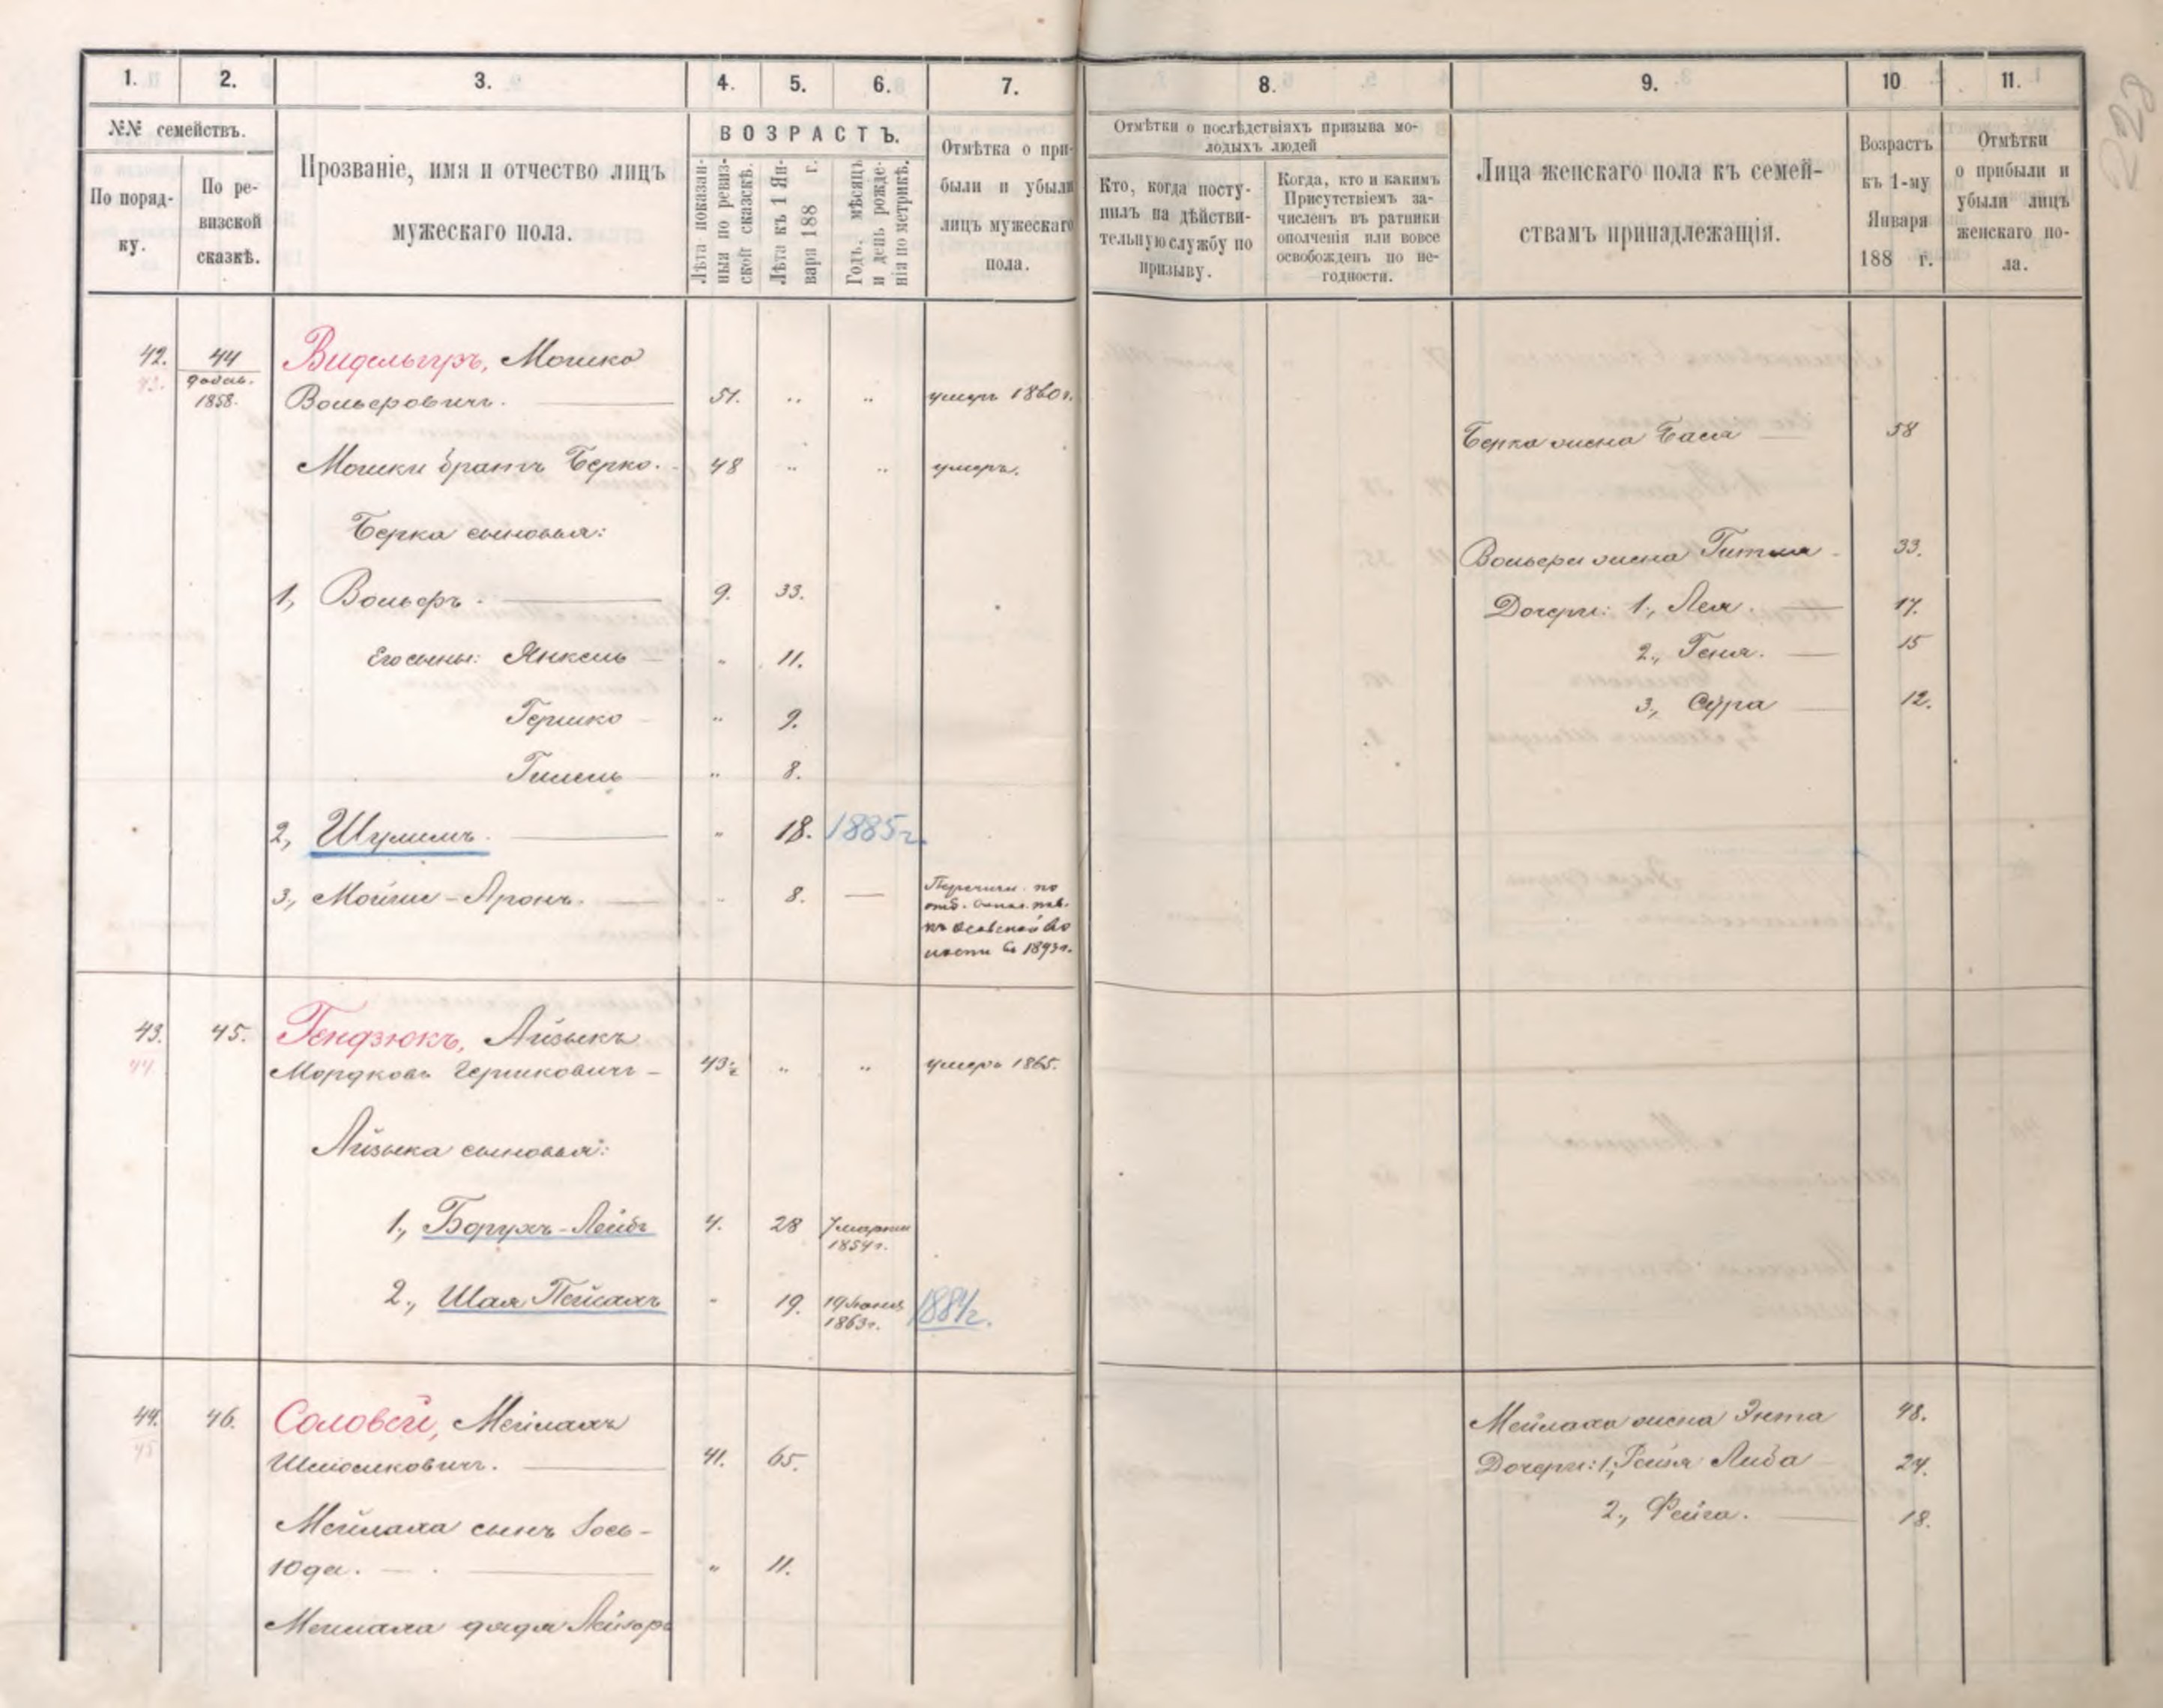 228
1.
2.
3.
4.
5.
6.
7.
8.
9.
10
11.
№№ семействъ.
По поряд-
ку.
По ре-
визской
сказкѣ.
Прозваніе, имя и отчество лицъ
мужескаго пола.
ВОЗРАСТЪ.
Лѣта показан-
ныя по ревиз-
ской сказкѣ.
Лѣта къ 1 Ян-
варя 188 г.
Годъ, мѣсяцъ
и день рожде-
нія по метрикѣ.
Отмѣтка о при-
были и убыли
лицъ мужескаго
пола.
Отмѣтки о послѣдствіяхъ призыва мо-
лодыхъ людей
Кто, когда посту-
пилъ на дѣйстви-
тельную службу по
призыву.
Когда, кто и какимъ
Присутствіемъ за-
численъ въ ратники
ополченія или вовсе
освобожденъ по не-
годности.
Лица женскаго пола къ семей-
ствамъ принадлежащія.
Возрастъ
къ 1-му
Января
188 г.
Отмѣтки
о прибыли и
убыли лицъ
женскаго по-
ла.
42. 44 Видельгуръ, Мошко
43. добав.
1858. Вольеровичъ. 51. " " умеръ 1860 г.
Мошки братъ Берко. 48 " " умеръ.
Берка жена Бася 58
Берка сыновья:
1, Вольфъ 9. 33.
Вольфа жена Гитля 33.
Дочери: 1., Лея. 17.
Его сыны: Янкель " 11.
2., Геня. 15
Гершко " 9.
3., Сура 12.
Гилель " 8.
2, Шулимъ. " 18. 1885 г.
3., Мойше-Аронъ. " 8. —
Перечисл. по
къ
1893 г.
43. 45. Гендзюкъ, Айзыкъ
44
Мордковъ Гершковичъ 43½ " " умеръ 1865.
Айзыка сыновья:
1., Борухъ-Лейбъ 4. 28 7 марта
1854 г.
2., Шая Пейсахъ " 19. 19
1863 г. 1884 г.
44. 46. Соловей, Мейлахъ
45
Шлиомковичъ. 41. 65.
Мейлаха жена Энта 48.
Дочери: 1., Рейзя Либа 24.
2., Фейга. 18.
Мейлаха сынъ Іось-
Юда. " 11.
Мейлаха дядя Лейзоръ